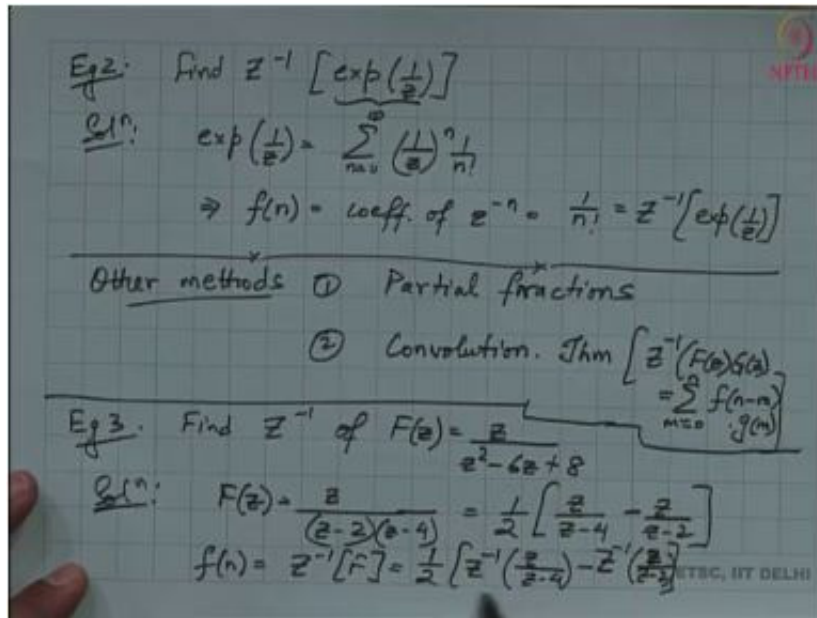 Eg 2: Find Z⁻¹ [exp(1/z)]
Solⁿ: exp(1/z) = ∑_{n=0}^{∞} (1/z)ⁿ 1/n!
⇒ f(n) = coeff. of z⁻ⁿ = 1/n! = Z⁻¹[exp(1/z)]
Other methods ① Partial fractions
② Convolution. Thm [Z⁻¹(F(z)G(z))
= ∑_{m=0}^{n} f(n-m)
·g(m)]
Eg 3. Find Z⁻¹ of F(z) = z/(z² - 6z + 8)
Solⁿ: F(z) = z/((z-2)(z-4)) = 1/2 [z/(z-4) - z/(z-2)]
f(n) = Z⁻¹[F] = 1/2 [Z⁻¹(z/(z-4)) - Z⁻¹(z/(z-2))]
NPTEL
ETSC, IIT DELHI